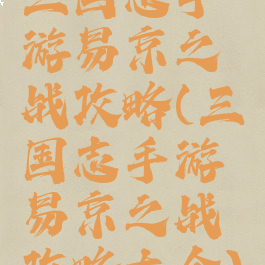 三国志手
游易京之
战攻略(三
国志手游
易京之战
攻略大全)